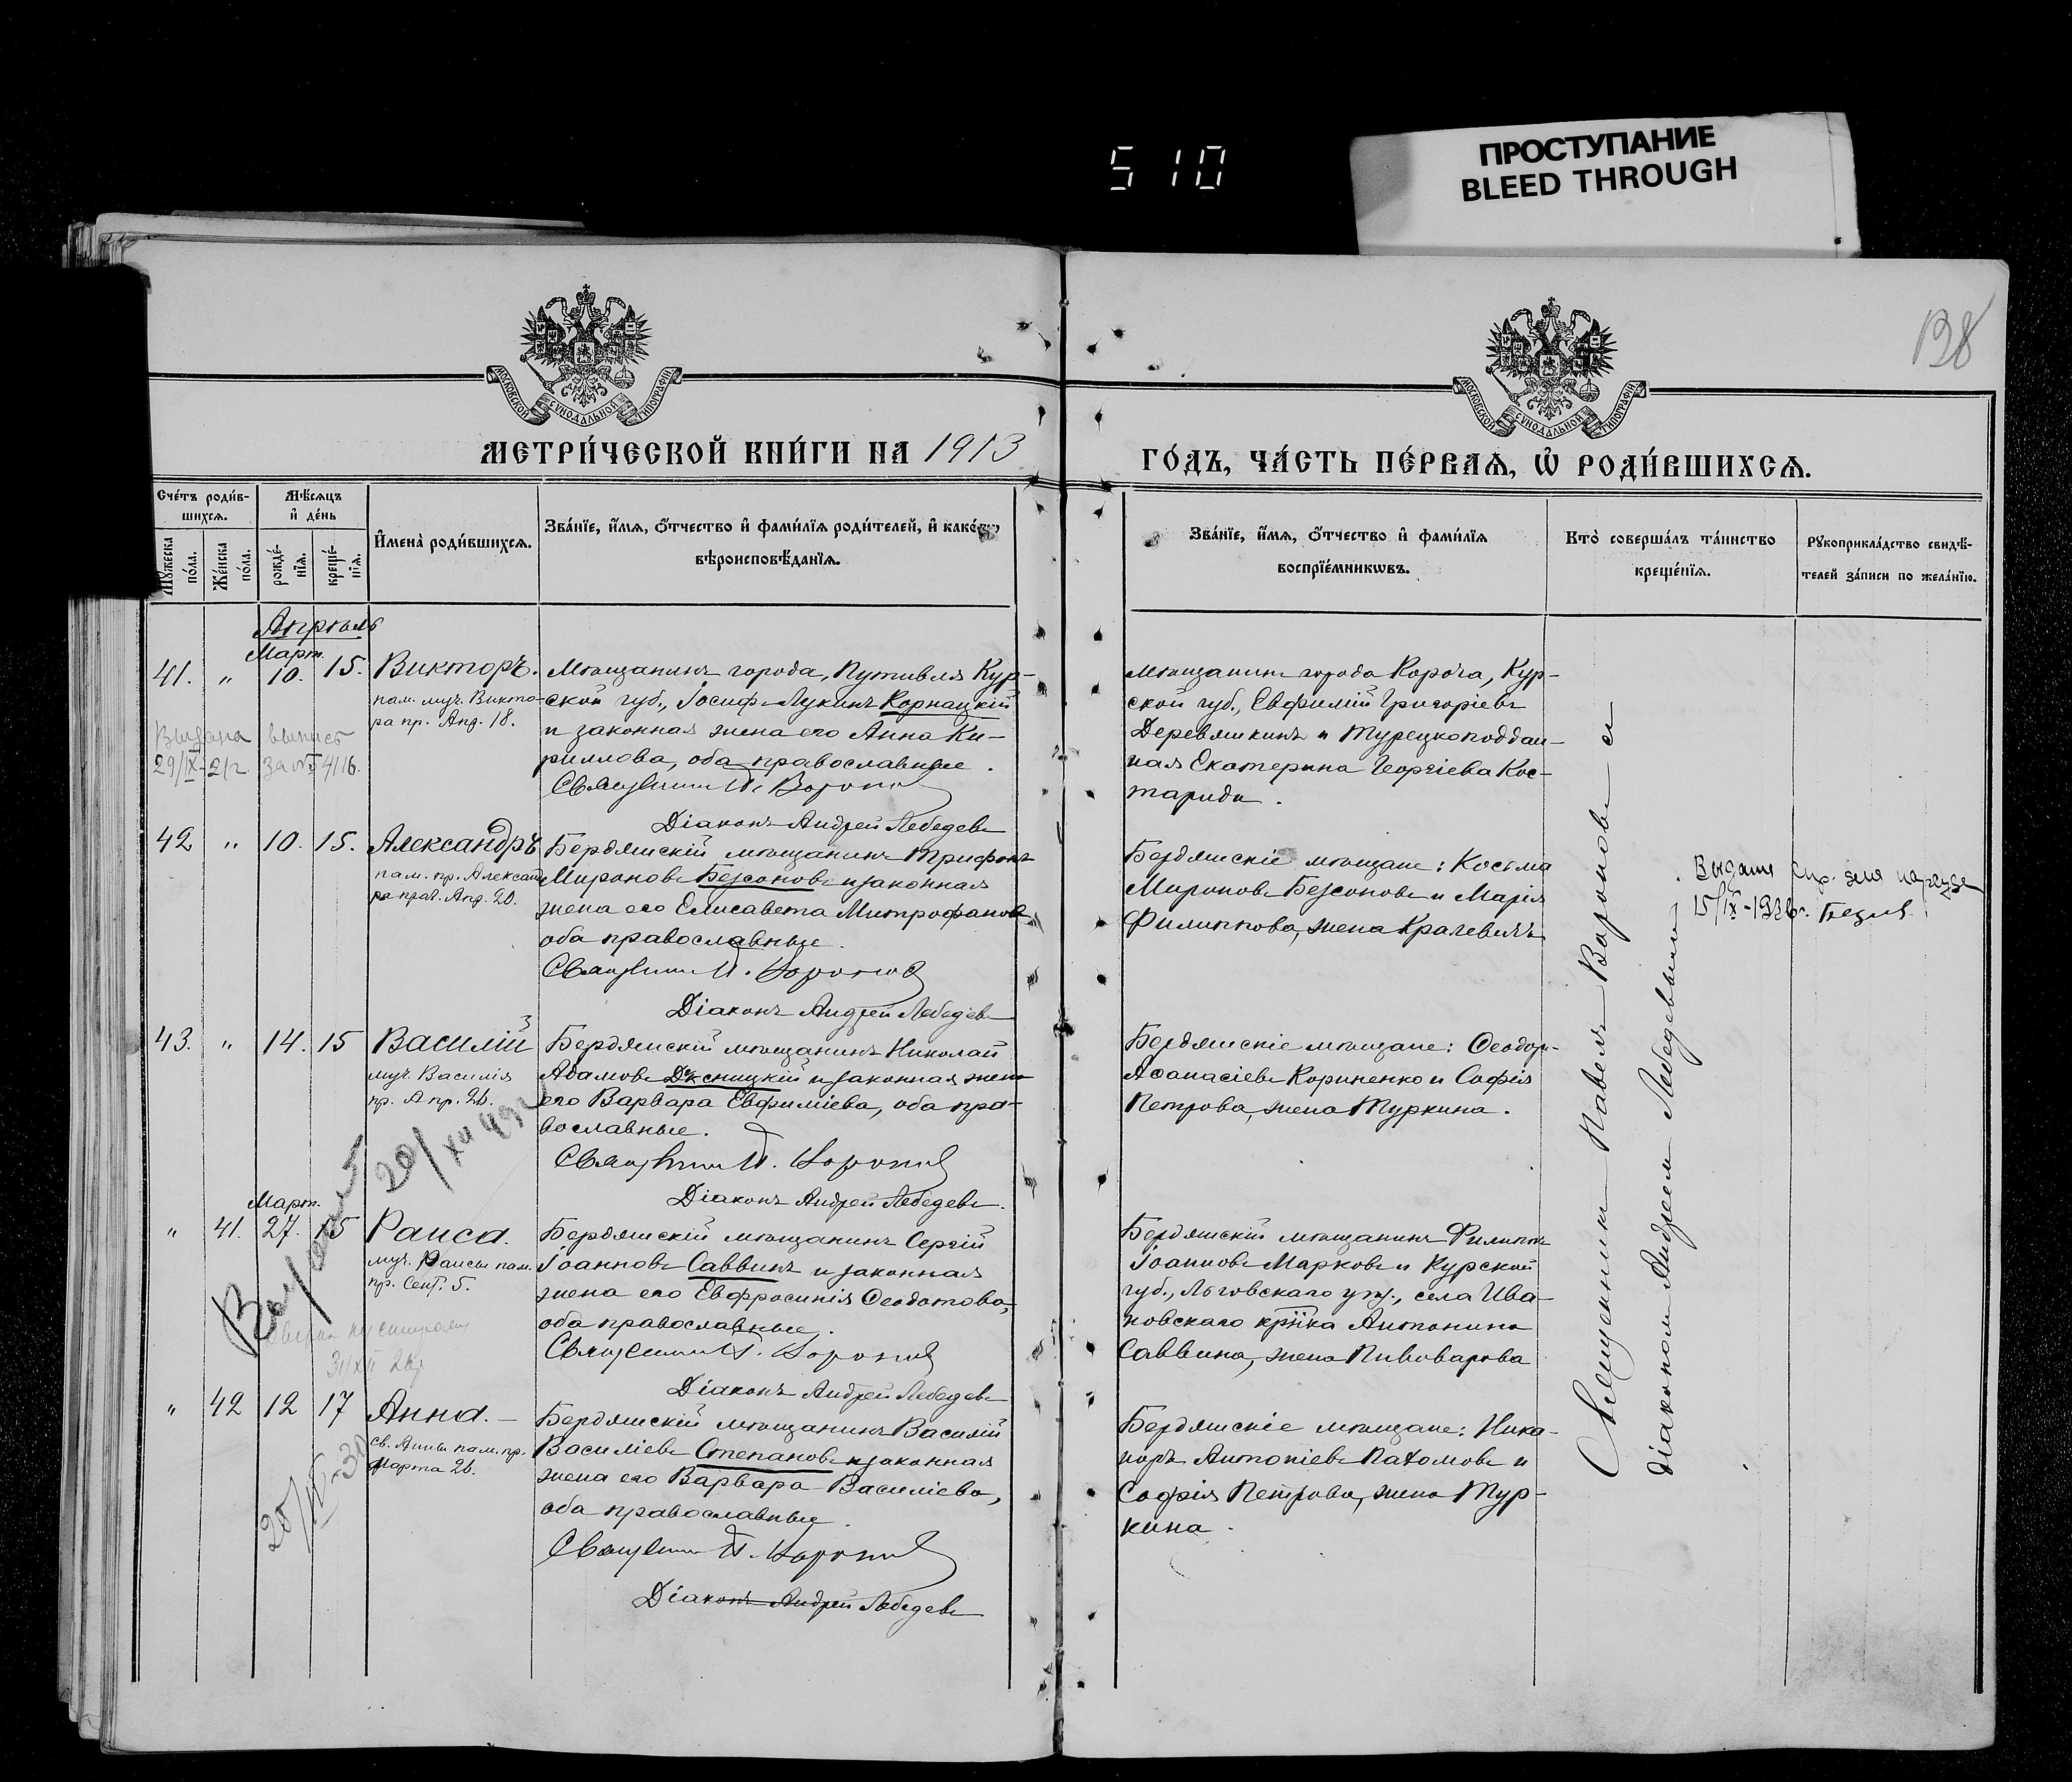 510
ПРОСТУПАНИЕ
BLEED THROUGH
138
МОСКОВСКОЙ СѴНОДАЛЬНОЙ ТИПОГРАФІИ
МОСКОВСКОЙ СѴНОДАЛЬНОЙ ТИПОГРАФІИ
МЕТРИ́ЧЕСКОЙ КНИ́ГИ НА 1913
ГО́ДЪ, ЧА́СТЬ ПЕ́РВАѦ, Ѡ҆ РОДИ́ВШИХСѦ.
Сче́тъ роди́в-
шихсѧ.
Мѣ́сѧцъ
и҆ де́нь
Мꙋ́жеска
по́ла.
Же́нска
по́ла.
рожде́-
нїѧ.
креще́-
нїѧ.
И҆мена̀ роди́вшихсѧ.
Зва́нїе, и҆́мѧ, ѻ҆́тчество и҆ фами́лїѧ роди́телей, и҆ како́гѡ
вѣроисповѣ́данїѧ.
Зва́нїе, и҆́мѧ, ѻ҆́тчество и҆ фами́лїѧ
воспрїе́мникѡвъ.
Кто̀ соверша́лъ та́инство
креще́нїѧ.
Рꙋкоприкла́дство свидѣ́-
телей за́писи по жела́нїю.
Апрѣль
Март.
41. " 10. 15. Викторъ.
пам. муч. Викто-
ра пр. Апр. 18.
Выдана выпись
29/IX-21г. за № 4116.
Мѣщанинъ города, Путивля Кур-
ской губ., Іосифъ Лукинъ Корнацкій
и законная жена его Анна Ки-
риллова, оба православные.
Священникъ П. Вороновъ
Діаконъ Андрей Лебедевъ
мѣщанинъ города Короча, Кур-
ской губ., Евфимій Григоріевъ
Деревянкинъ и Турецкоподдан-
ная Екатерина Георгіева Кос-
тариди.
42 " 10. 15. Александръ
пам. пр. Александ
ра прав. Апр. 20.
Бердянскій мѣщанинъ Трифонъ
Мироновъ Безсоновъ и законная
жена его Елисавета Митрофанова
оба православные.
Священникъ П. Вороновъ
Діаконъ Андрей Лебедевъ
Бердянскіе мѣщане: Косьма
Мироновъ Безсоновъ и Марія
Филиппова, жена Кралевичъ
43. " 14. 15 Василій
муч. Василія
пр. Апр. 26.
Бердянскій мѣщанинъ Николай
Адамовъ Дъксницкій и законная жена
его Варвара Евфиміева, оба пра-
вославные.
Священникъ П. Вороновъ
Діаконъ Андрей Лебедевъ.
Бердянскіе мѣщане: Ѳеодоръ
Аѳанасіевъ Кориненко и Софія
Петрова, жена Туркина.
Март.
" 41. 27. 15 Раиса.
муч. Раисы пам.
пр. Сент. 5.
Бердянскій мѣщанинъ Сергій
Іоанновъ Саввинъ и законная
жена его Евфросинія Ѳеодотова,
оба православные.
Священникъ П. Вороновъ
Діаконъ Андрей Лебедевъ
Бердянскій мѣщанинъ Филиппъ
Іоанновъ Марковъ и Курской
губ., Льговскаго у., села Ива-
новскаго кр-нка Антонина
Саввина, жена Пивоварова
" 42 12 17 Анна. —
св. Анны пам. пр.
Марта 26.
Бердянскій мѣщанинъ Василій
Василіевъ Степановъ и законная
жена его Варвара Василіева,
оба православные.
Священникъ П. Вороновъ
Діаконъ Андрей Лебедевъ
Бердянскіе мѣщане: Ника-
норъ Антоніевъ Пахомовъ и
Софія Петрова, жена Тур-
кина.
Священникъ Павелъ Вороновъ съ
діакономъ Андреемъ Лебедевымъ
15/IX-1936г.